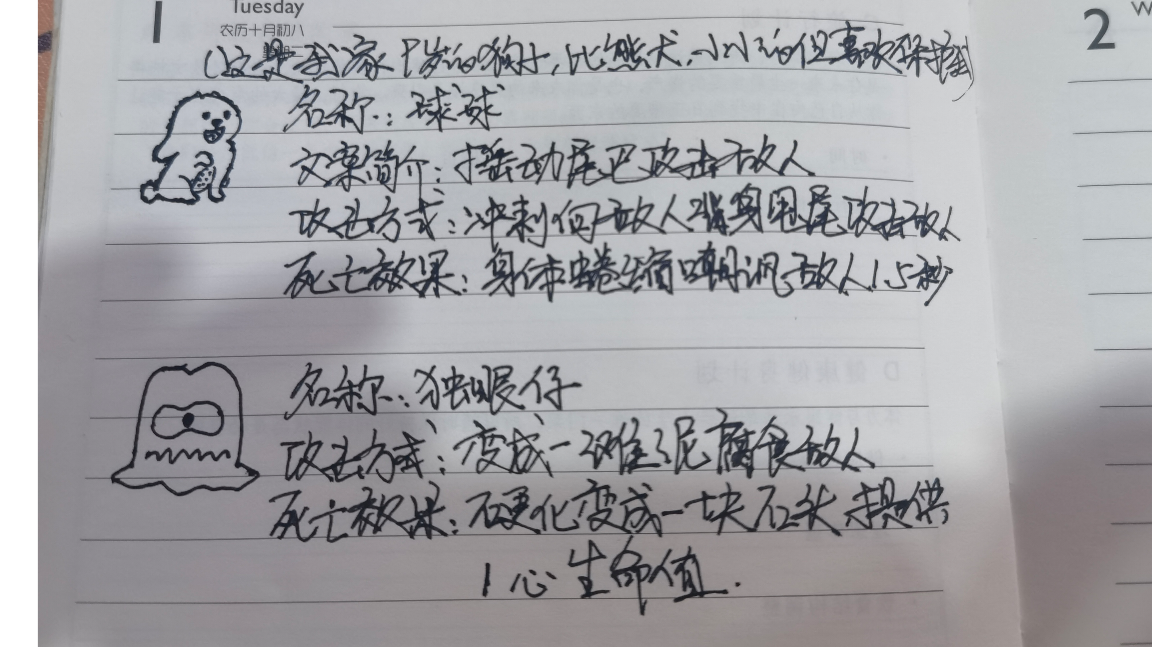 1
Tuesday
农历十月初八
星期二
(这是我家9岁的狗子,比熊犬,小小的但喜欢保护我)
名称:球球
文案简介:摇动尾巴攻击敌人
攻击方式:冲刺向敌人背身甩尾攻击敌人
死亡效果:身体蜷缩嘲讽敌人1.5秒
名称:独眼仔
攻击方式:变成一滩泥腐食敌人
死亡效果:石更化变成一块石头提供
1心生命值.
2
W